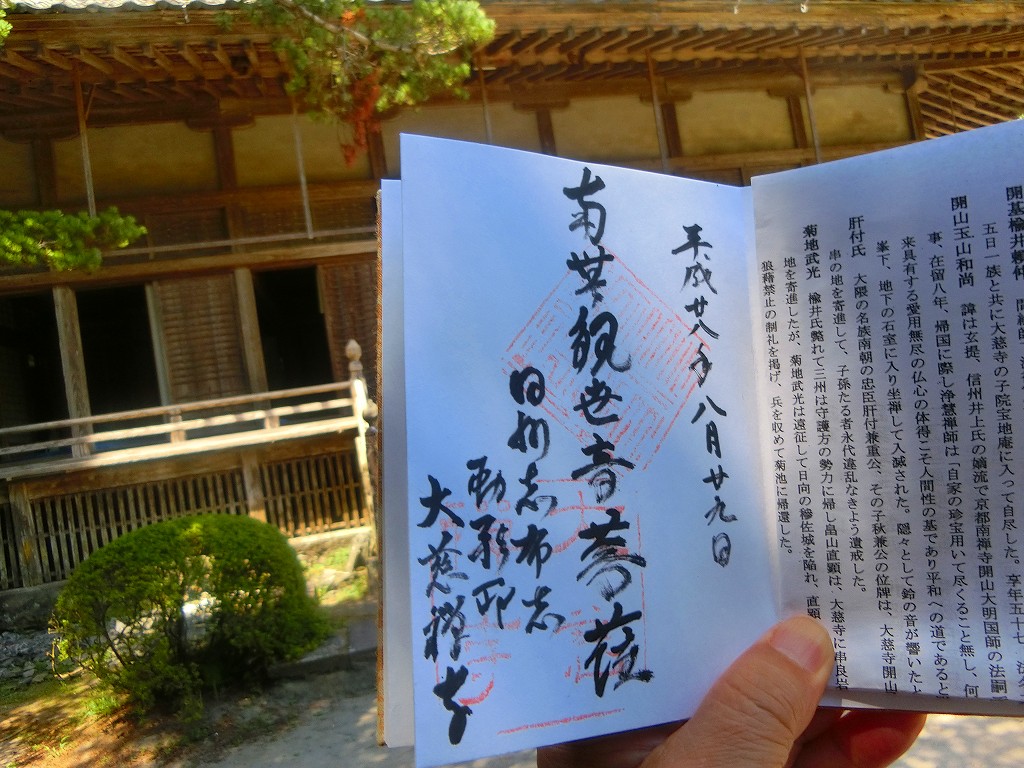 開山玉山和尚　諱は玄提、信州井上氏の嫡流で京都南禅寺開山大明国師の法嗣
事、在留八年、帰国に際し浄慧禅師は「自家の珍宝用いて尽くること無し、何
来具有する愛用無尽の仏心の体得こそ人間性の基であり平和への道であると
峯下、地下の石室に入り坐禅して入滅された。隠々として鈴の音が響いたと
肝付氏　大隈の名族南朝の忠臣肝付兼重公、その子秋兼公の位牌は、大慈寺開山
串の地を寄進して、子孫たる者永代違乱なきよう遺戒した。
菊地武光　楡井氏斃れて三州は守護方の勢力に帰し畠山直顕は、大慈寺に串良岩
地を寄進したが、菊地武光は遠征して日向の穆佐城を陥れ、直顕
狼藉禁止の制礼を掲げ、兵を収めて菊池に帰還した。
平成廿八年八月廿九日
南無観世音菩薩
日州志布志
勅願印
大慈禅寺